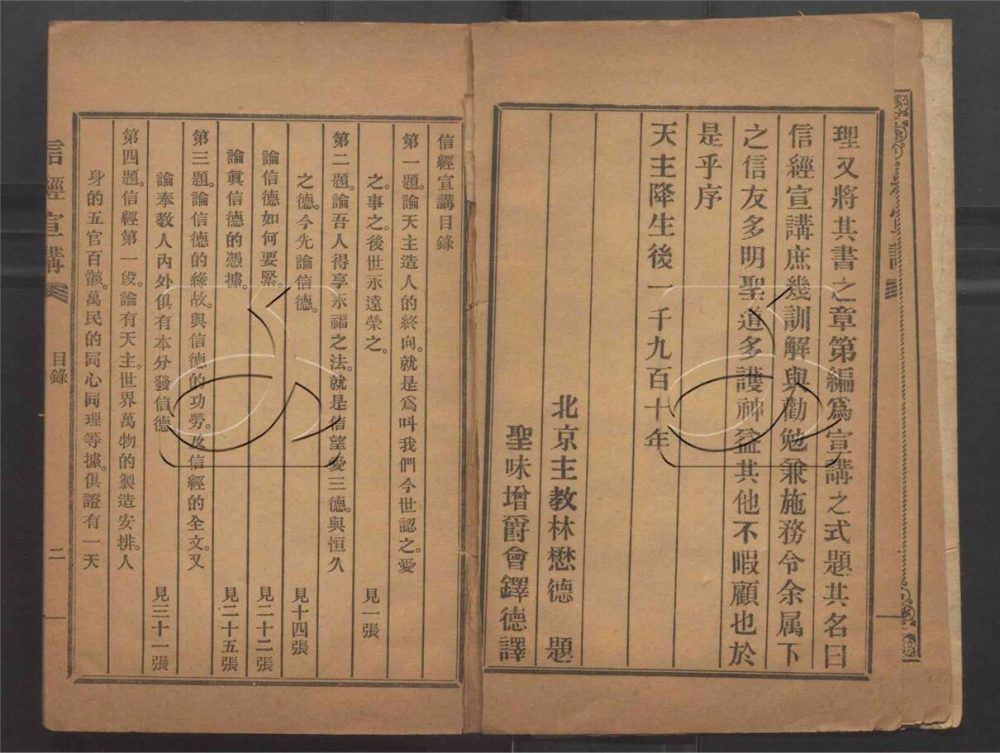 理又將其書之章第編爲宣講之式題其名曰
信經宣講庶幾訓解與勸勉兼施務令余属下
之信友多明聖道多護神益其他不暇顧也於
是乎序
天主降生後一千九百十年
北京主教林懋德　題
聖味增爵會鐸德譯
信經宣講目錄
第一題。論天主造人的終向。就是爲叫我們今世認之。愛
之。事之。後世永遠榮之。　見一張
第二題。論吾人得享永福之法。就是信望愛三德。與恒久
之德。今先論信德。　見十四張
論信德如何要緊。　見二十二張
論眞信德的憑據。　見二十五張
第三題。論信德的緣故。與信德的功勞。及信經的全文。又
論奉敎人內外俱有本分發信德　見三十一張
第四題。信經第一段。論有天主。世界萬物的製造安排。人
身的五官百骸。萬民的同心同理等據。俱證有一天
信經宣講　目錄　二